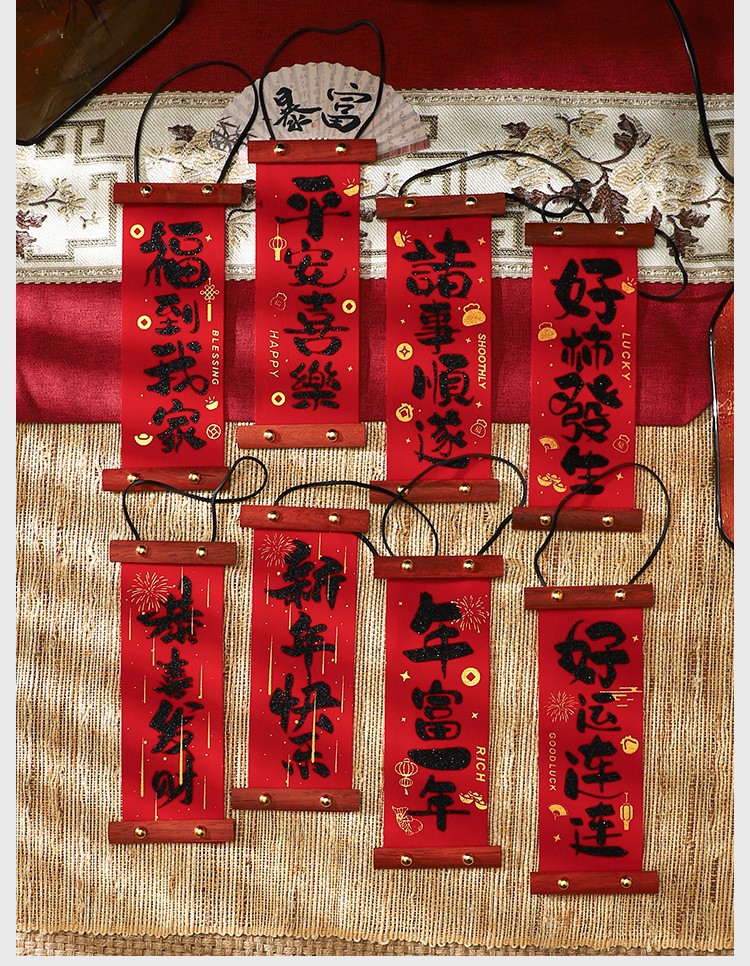 暴富
福到我家
BLESSING
平安喜樂
HAPPY
諸事順遂
SHOOTHLY
好柿發生
LUCKY
恭喜发财
新年快乐
年富一年
RICH
好运连连
GOODLUCK